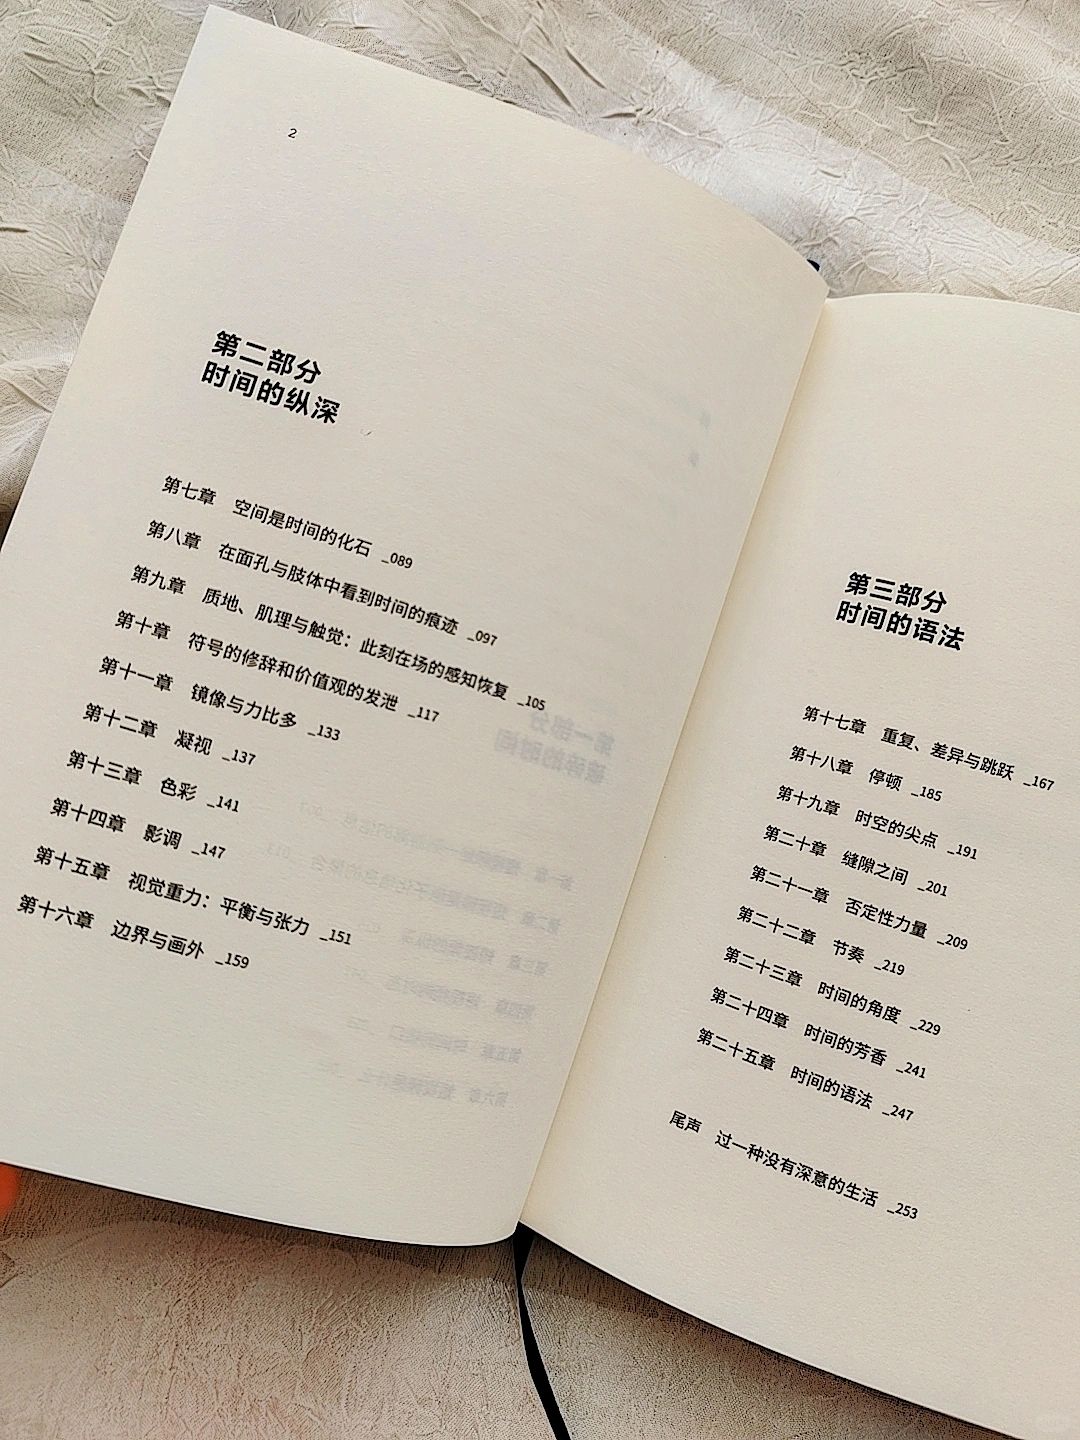 2
第二部分
时间的纵深
第七章 空间是时间的化石 _089
第八章 在面孔与肢体中看到时间的痕迹 _097
第九章 质地、肌理与触觉：此刻在场的感知恢复 _105
第十章 符号的修辞和价值观的发泄 _117
第十一章 镜像与力比多 _133
第十二章 凝视 _137
第十三章 色彩 _141
第十四章 影调 _147
第十五章 视觉重力：平衡与张力 _151
第十六章 边界与画外 _159
第三部分
时间的语法
第十七章 重复、差异与跳跃 _167
第十八章 停顿 _185
第十九章 时空的尖点 _191
第二十章 缝隙之间 _201
第二十一章 否定性力量 _209
第二十二章 节奏 _219
第二十三章 时间的角度 _229
第二十四章 时间的芳香 _241
第二十五章 时间的语法 _247
尾声 过一种没有深意的生活 _253